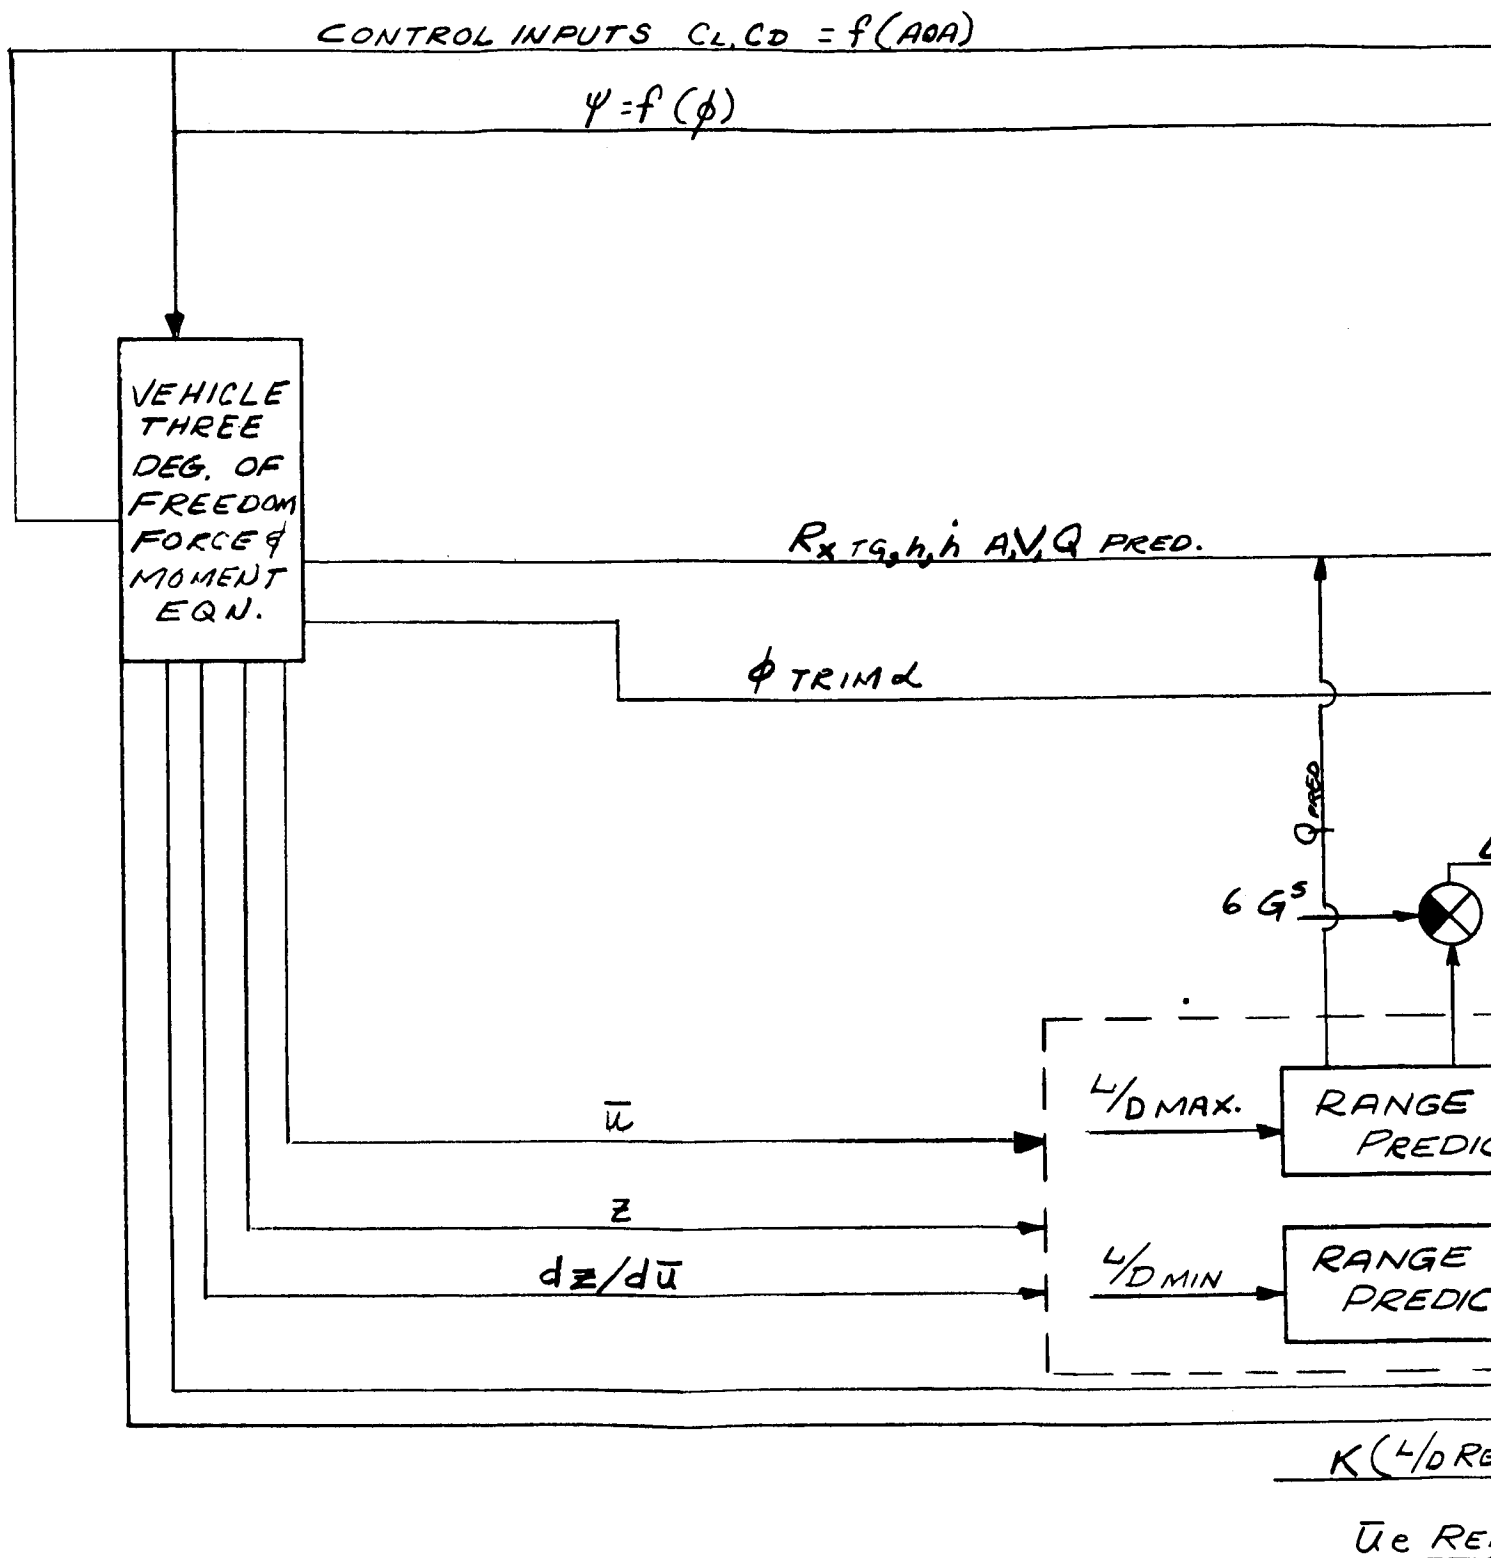 CONTROL INPUTS CL, CD = f(AOA)
ψ = f(φ)
VEHICLE
THREE
DEG. OF
FREEDOM
FORCE &
MOMENT
EQN.
Rx TG, h, ḣ A, V, Q PRED.
φ TRIM α
Q PRED
6 Gs
L/D MAX.
RANGE
PREDIC
ū
z
dz/dū
L/D MIN
RANGE
PREDIC
K (L/D RE
ūe RE